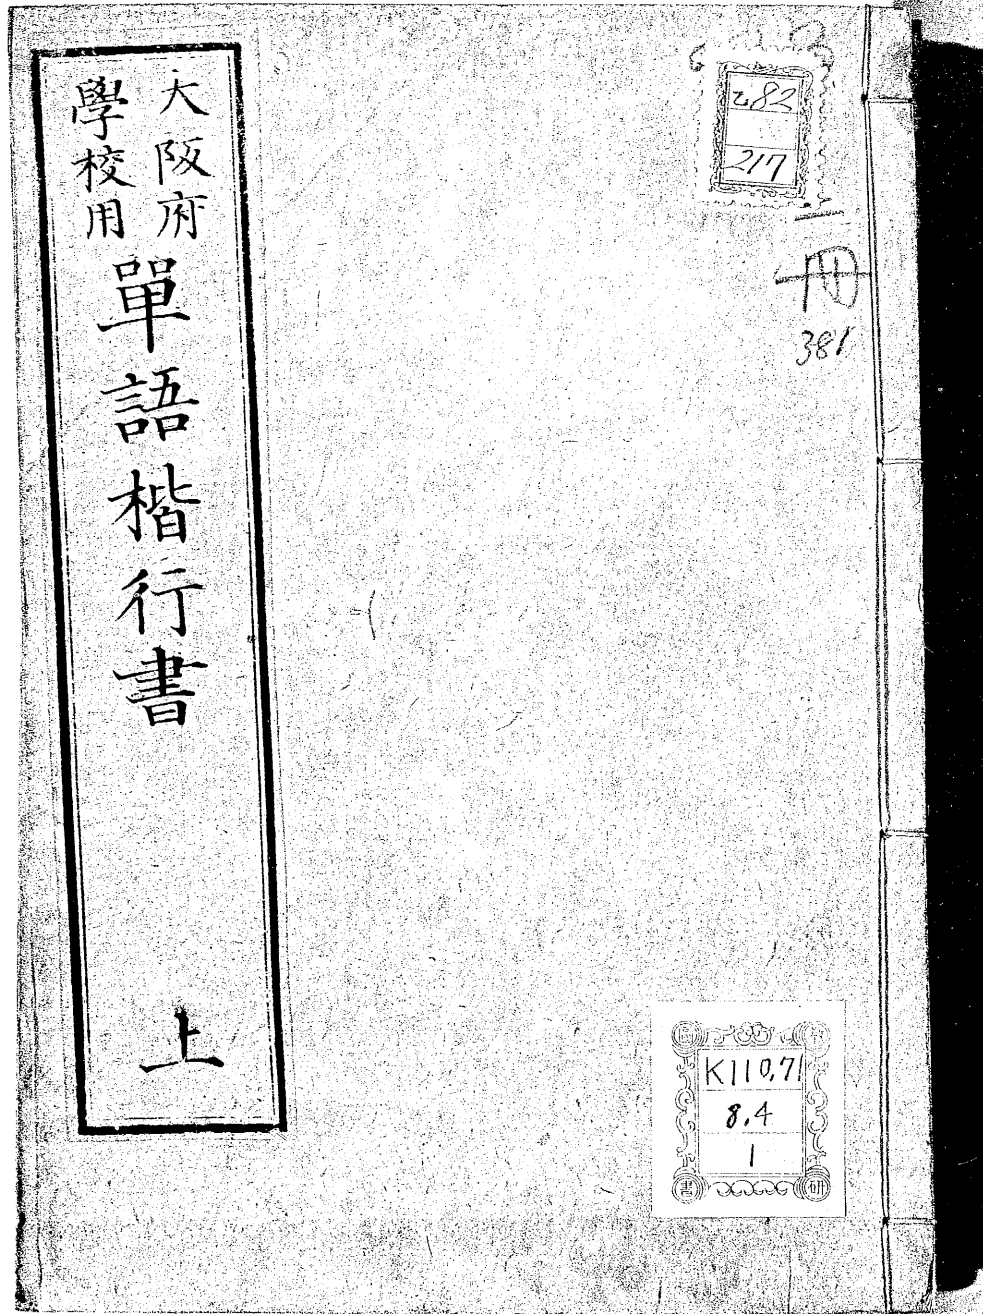 大阪府
學校用
單語楷行書
上
乙82
217
冊
381
K110.71
8.4
1